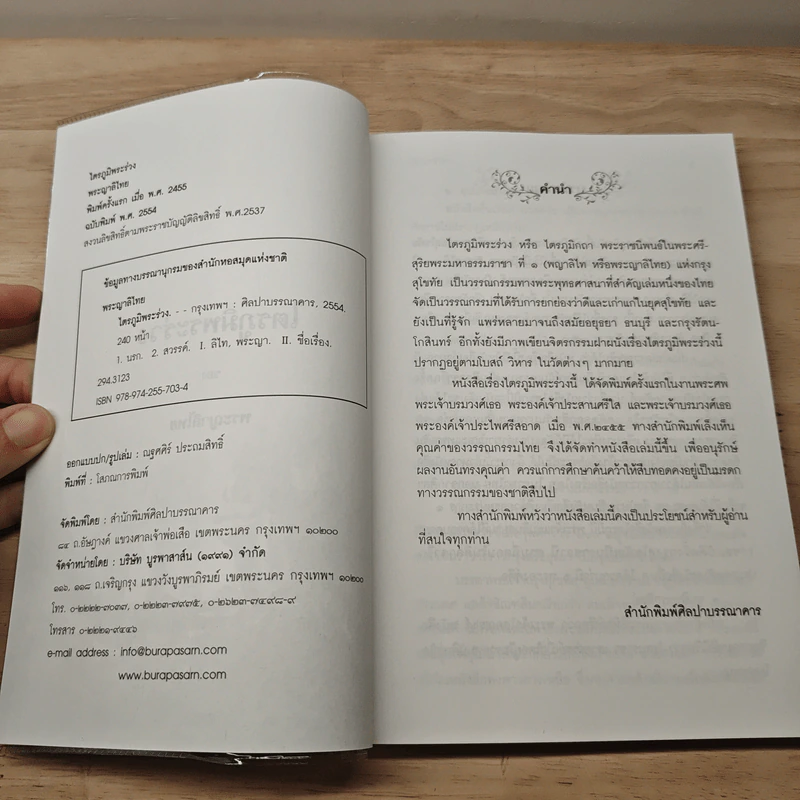 ไตรภูมิพระร่วง
พระญาลิไทย
พิมพ์ครั้งแรก เมื่อ พ.ศ. 2455
ฉบับพิมพ์ พ.ศ. 2554
สงวนลิขสิทธิ์ตามพระราชบัญญัติลิขสิทธิ์ พ.ศ.2537
ข้อมูลทางบรรณานุกรมของสำนักหอสมุดแห่งชาติ
พระญาลิไทย
ไตรภูมิพระร่วง. - - กรุงเทพฯ : ศิลปาบรรณาคาร, 2554.
240 หน้า
1. นรก. 2. สวรรค์. I. ลิไท, พระญา. II. ชื่อเรื่อง.
294.3123
ISBN 978-974-255-703-4
ออกแบบปก/รูปเล่ม : ณฐศศิร์ ประถมสิทธิ์
พิมพ์ที่ : โสภณการพิมพ์
จัดพิมพ์โดย : สำนักพิมพ์ศิลปาบรรณาคาร
๘๔ ถ.อัษฎางค์ แขวงศาลเจ้าพ่อเสือ เขตพระนคร กรุงเทพฯ ๑๐๒๐๐
จัดจำหน่ายโดย : บริษัท บูรพาสาส์น (๑๙๙๑) จำกัด
๑๑๖, ๑๑๘ ถ.เจริญกรุง แขวงวังบูรพาภิรมย์ เขตพระนคร กรุงเทพฯ ๑๐๒๐๐
โทร. ๐-๒๒๒๒-๗๐๓๗, ๐-๒๒๒๓-๗๙๗๕, ๐-๒๖๒๓-๗๔๙๘-๙
โทรสาร ๐-๒๒๒๑-๙๔๔๖
e-mail address : info@burapasarn.com
www.burapasarn.com
คำนำ
ไตรภูมิพระร่วง หรือ ไตรภูมิกถา พระราชนิพนธ์ในพระศรี-
สุริยพระมหาธรรมราชา ที่ ๑ (พญาลิไท หรือพระญาลิไทย) แห่งกรุง
สุโขทัย เป็นวรรณกรรมทางพระพุทธศาสนาที่สำคัญเล่มหนึ่งของไทย
จัดเป็นวรรณกรรมที่ได้รับการยกย่องว่าดีและเก่าแก่ในยุคสุโขทัย และ
ยังเป็นที่รู้จัก แพร่หลายมาจนถึงสมัยอยุธยา ธนบุรี และกรุงรัตน-
โกสินทร์ อีกทั้งยังมีภาพเขียนจิตรกรรมฝาผนังเรื่องไตรภูมิพระร่วงนี้
ปรากฏอยู่ตามโบสถ์ วิหาร ในวัดต่างๆ มากมาย
หนังสือเรื่องไตรภูมิพระร่วงนี้ ได้จัดพิมพ์ครั้งแรกในงานพระศพ
พระเจ้าบรมวงศ์เธอ พระองค์เจ้าประสานศรีใส และพระเจ้าบรมวงศ์เธอ
พระองค์เจ้าประไพศรีสอาด เมื่อ พ.ศ.๒๔๕๕ ทางสำนักพิมพ์เล็งเห็น
คุณค่าของวรรณกรรมไทย จึงได้จัดทำหนังสือเล่มนี้ขึ้น เพื่ออนุรักษ์
ผลงานอันทรงคุณค่า ควรแก่การศึกษาค้นคว้าให้สืบทอดคงอยู่เป็นมรดก
ทางวรรณกรรมของชาติสืบไป
ทางสำนักพิมพ์หวังว่าหนังสือเล่มนี้คงเป็นประโยชน์สำหรับผู้อ่าน
ที่สนใจทุกท่าน
สำนักพิมพ์ศิลปาบรรณาคาร